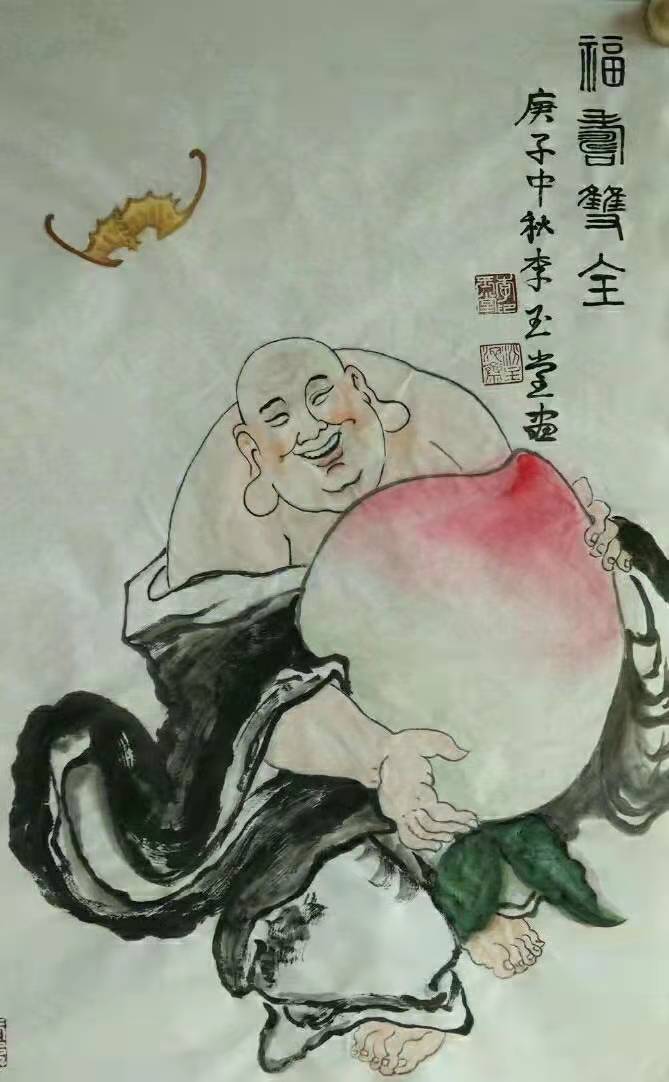 福壽雙全
庚子中秋李玉堂畫